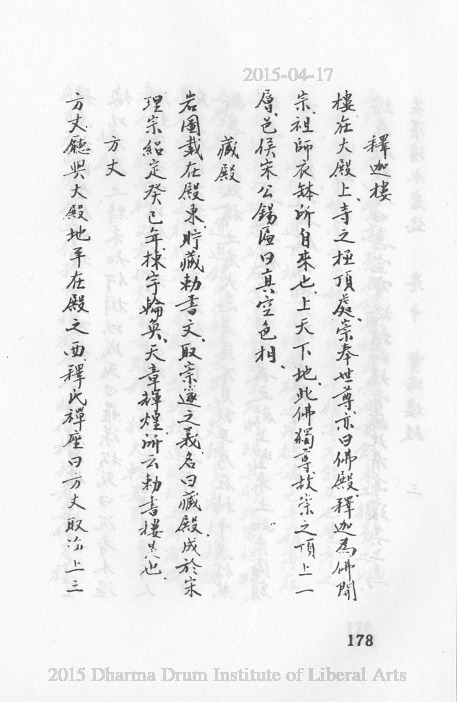 2015-04-17
釋迦樓
樓在大殿上、寺之極頂處、崇奉世尊亦曰佛殿、釋迦為佛開
宗祖師衣缽所自來也、上天下地、此佛獨尊、故崇之頂上一
層、邑侯宋公錫匾曰真空色相、
藏殿
岩圖載在殿東貯藏勅書文、取崇邃之義、名曰藏殿、成於宋
理宗紹定癸巳年、棟宇輪奐、天章輝煌、所云勅書樓是也、
方丈
方丈廳與大殿地平在殿之西、釋氏禪座曰方丈取海上三
178
2015 Dharma Drum Institute of Liberal Arts